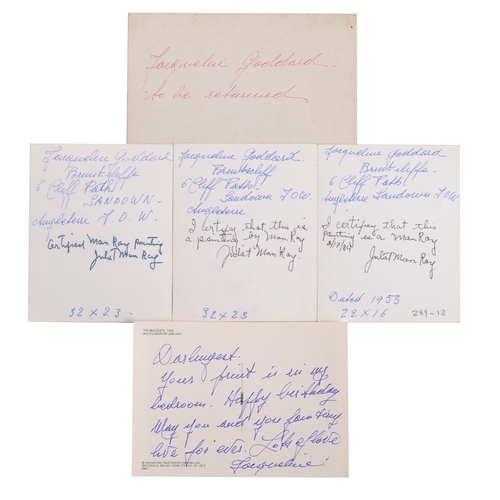 Jacqueline Goddard.
to be returned
Jacqueline Goddard
6 Cliff Path
SANDOWN -
Angleterre I.O.W.
Certified Man Ray painting
Juliet Man Ray
32 x 23 -
Jacqueline Goddard
6 Cliff Path
Sandown I.O.W.
Angleterre
I certify that this is
a painting by Man Ray
Juliet Man Ray.
32 x 23
Jacqueline Goddard
6 Cliff Path
Angleterre Sandown I.O.W.
I certify that this
painting is a Man Ray
Juliet Man Ray
Dated 1953
22 x 16
289-12
Darlingest.
Yours print is in my
bedroom. Happy birthday
May you and you
live for ever. Lots of love
Jacqueline